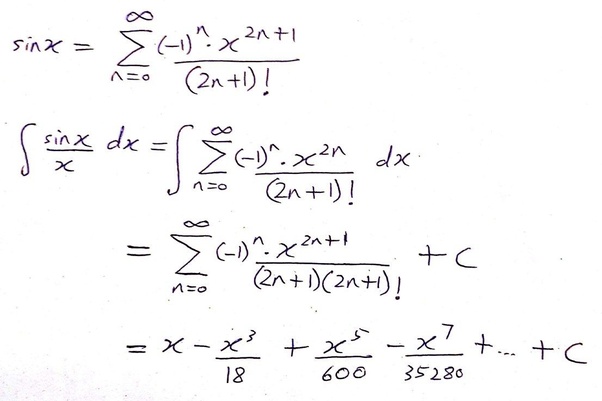 sinx = ∞ Σ n=0 (-1)^n · x^{2n+1} / (2n+1)!
∫ sinx / x dx = ∫ ∞ Σ n=0 (-1)^n · x^{2n} / (2n+1)! dx
= ∞ Σ n=0 (-1)^n · x^{2n+1} / (2n+1)(2n+1)! + C
= x - x^3 / 18 + x^5 / 600 - x^7 / 35280 + ... + C